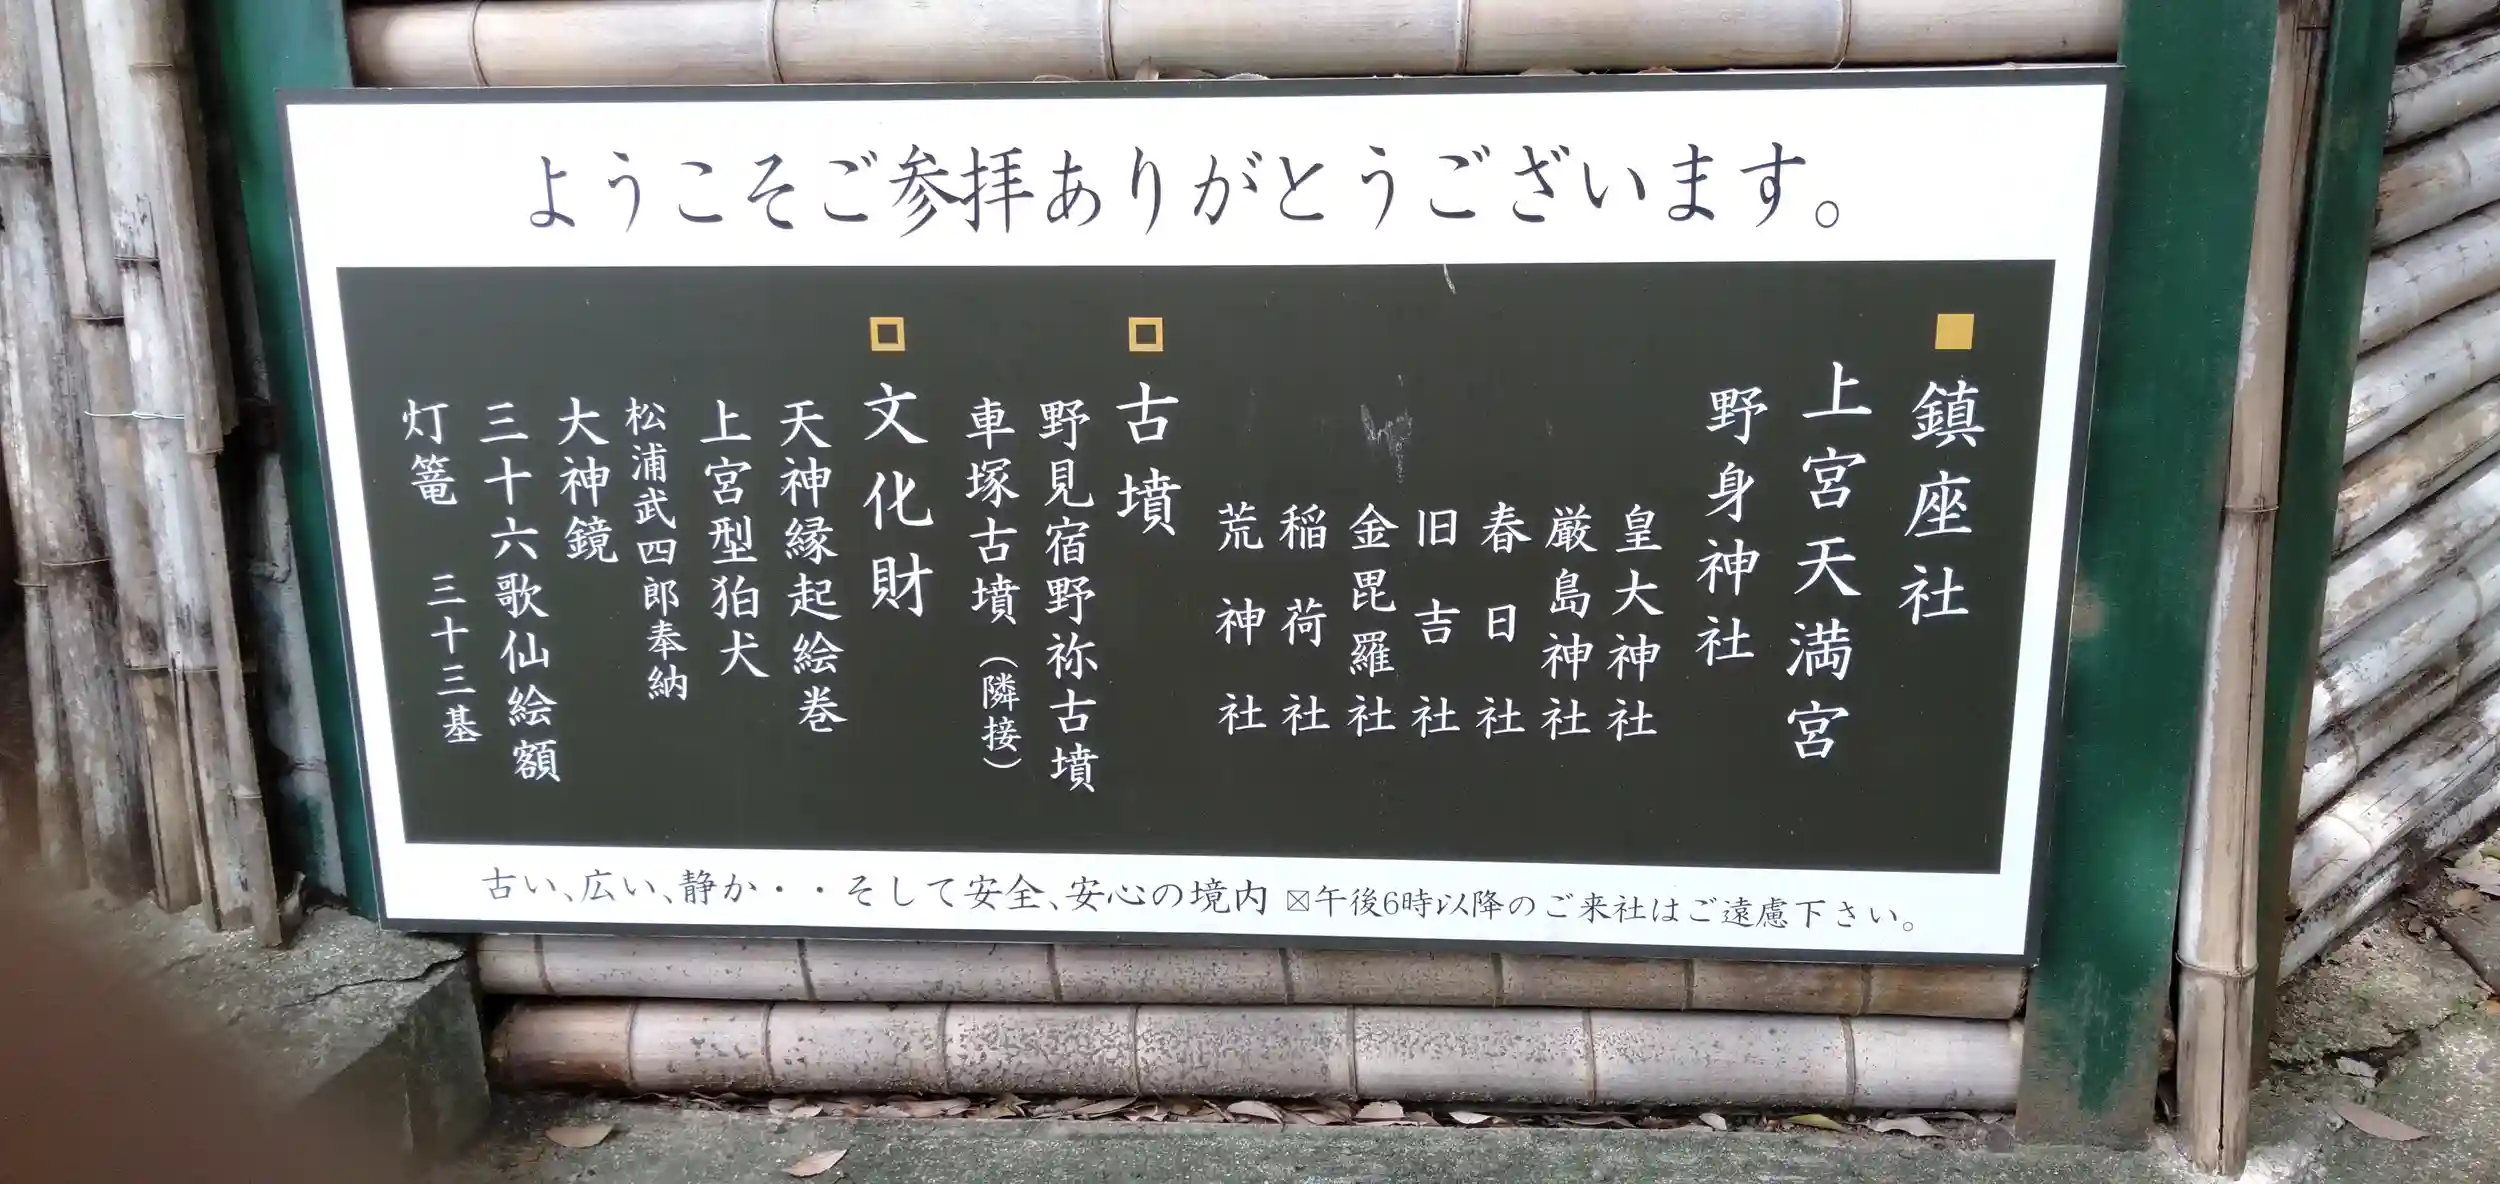 ようこそご参拝ありがとうございます。
鎮座社
上宮天満宮
野身神社
皇大神社
厳島神社
春日社
旧吉社
金毘羅社
稲荷社
荒神社
古墳
野見宿野祢古墳
車塚古墳（隣接）
文化財
天神縁起絵巻
上宮型狛犬
松浦武四郎奉納
大神鏡
三十六歌仙絵額
灯篭 三十三基
古い、広い、静か・・そして安全、安心の境内 ☒午後6時以降のご来社はご遠慮下さい。